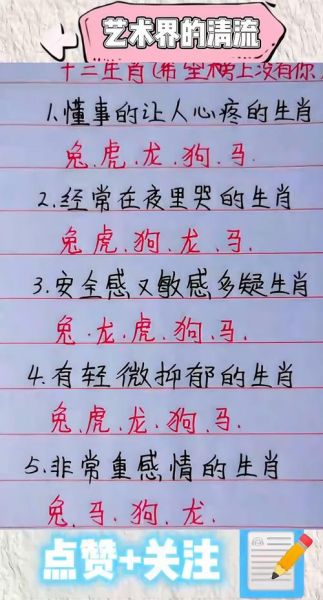 艺术界的清流
十二生肖(希望榜上没有你)
1.懂事的让人心疼的生肖
兔.虎.龙.狗.马.
2.经常在夜里哭的生肖
兔.虎.狗.龙.马.
3.安全感又敏感多疑生肖
兔.龙.虎.狗.马.
4.有轻微抑郁的生肖
兔.虎.龙.狗.马.
5.非常重感情的生肖
兔.马.狗.龙.
点赞+关注